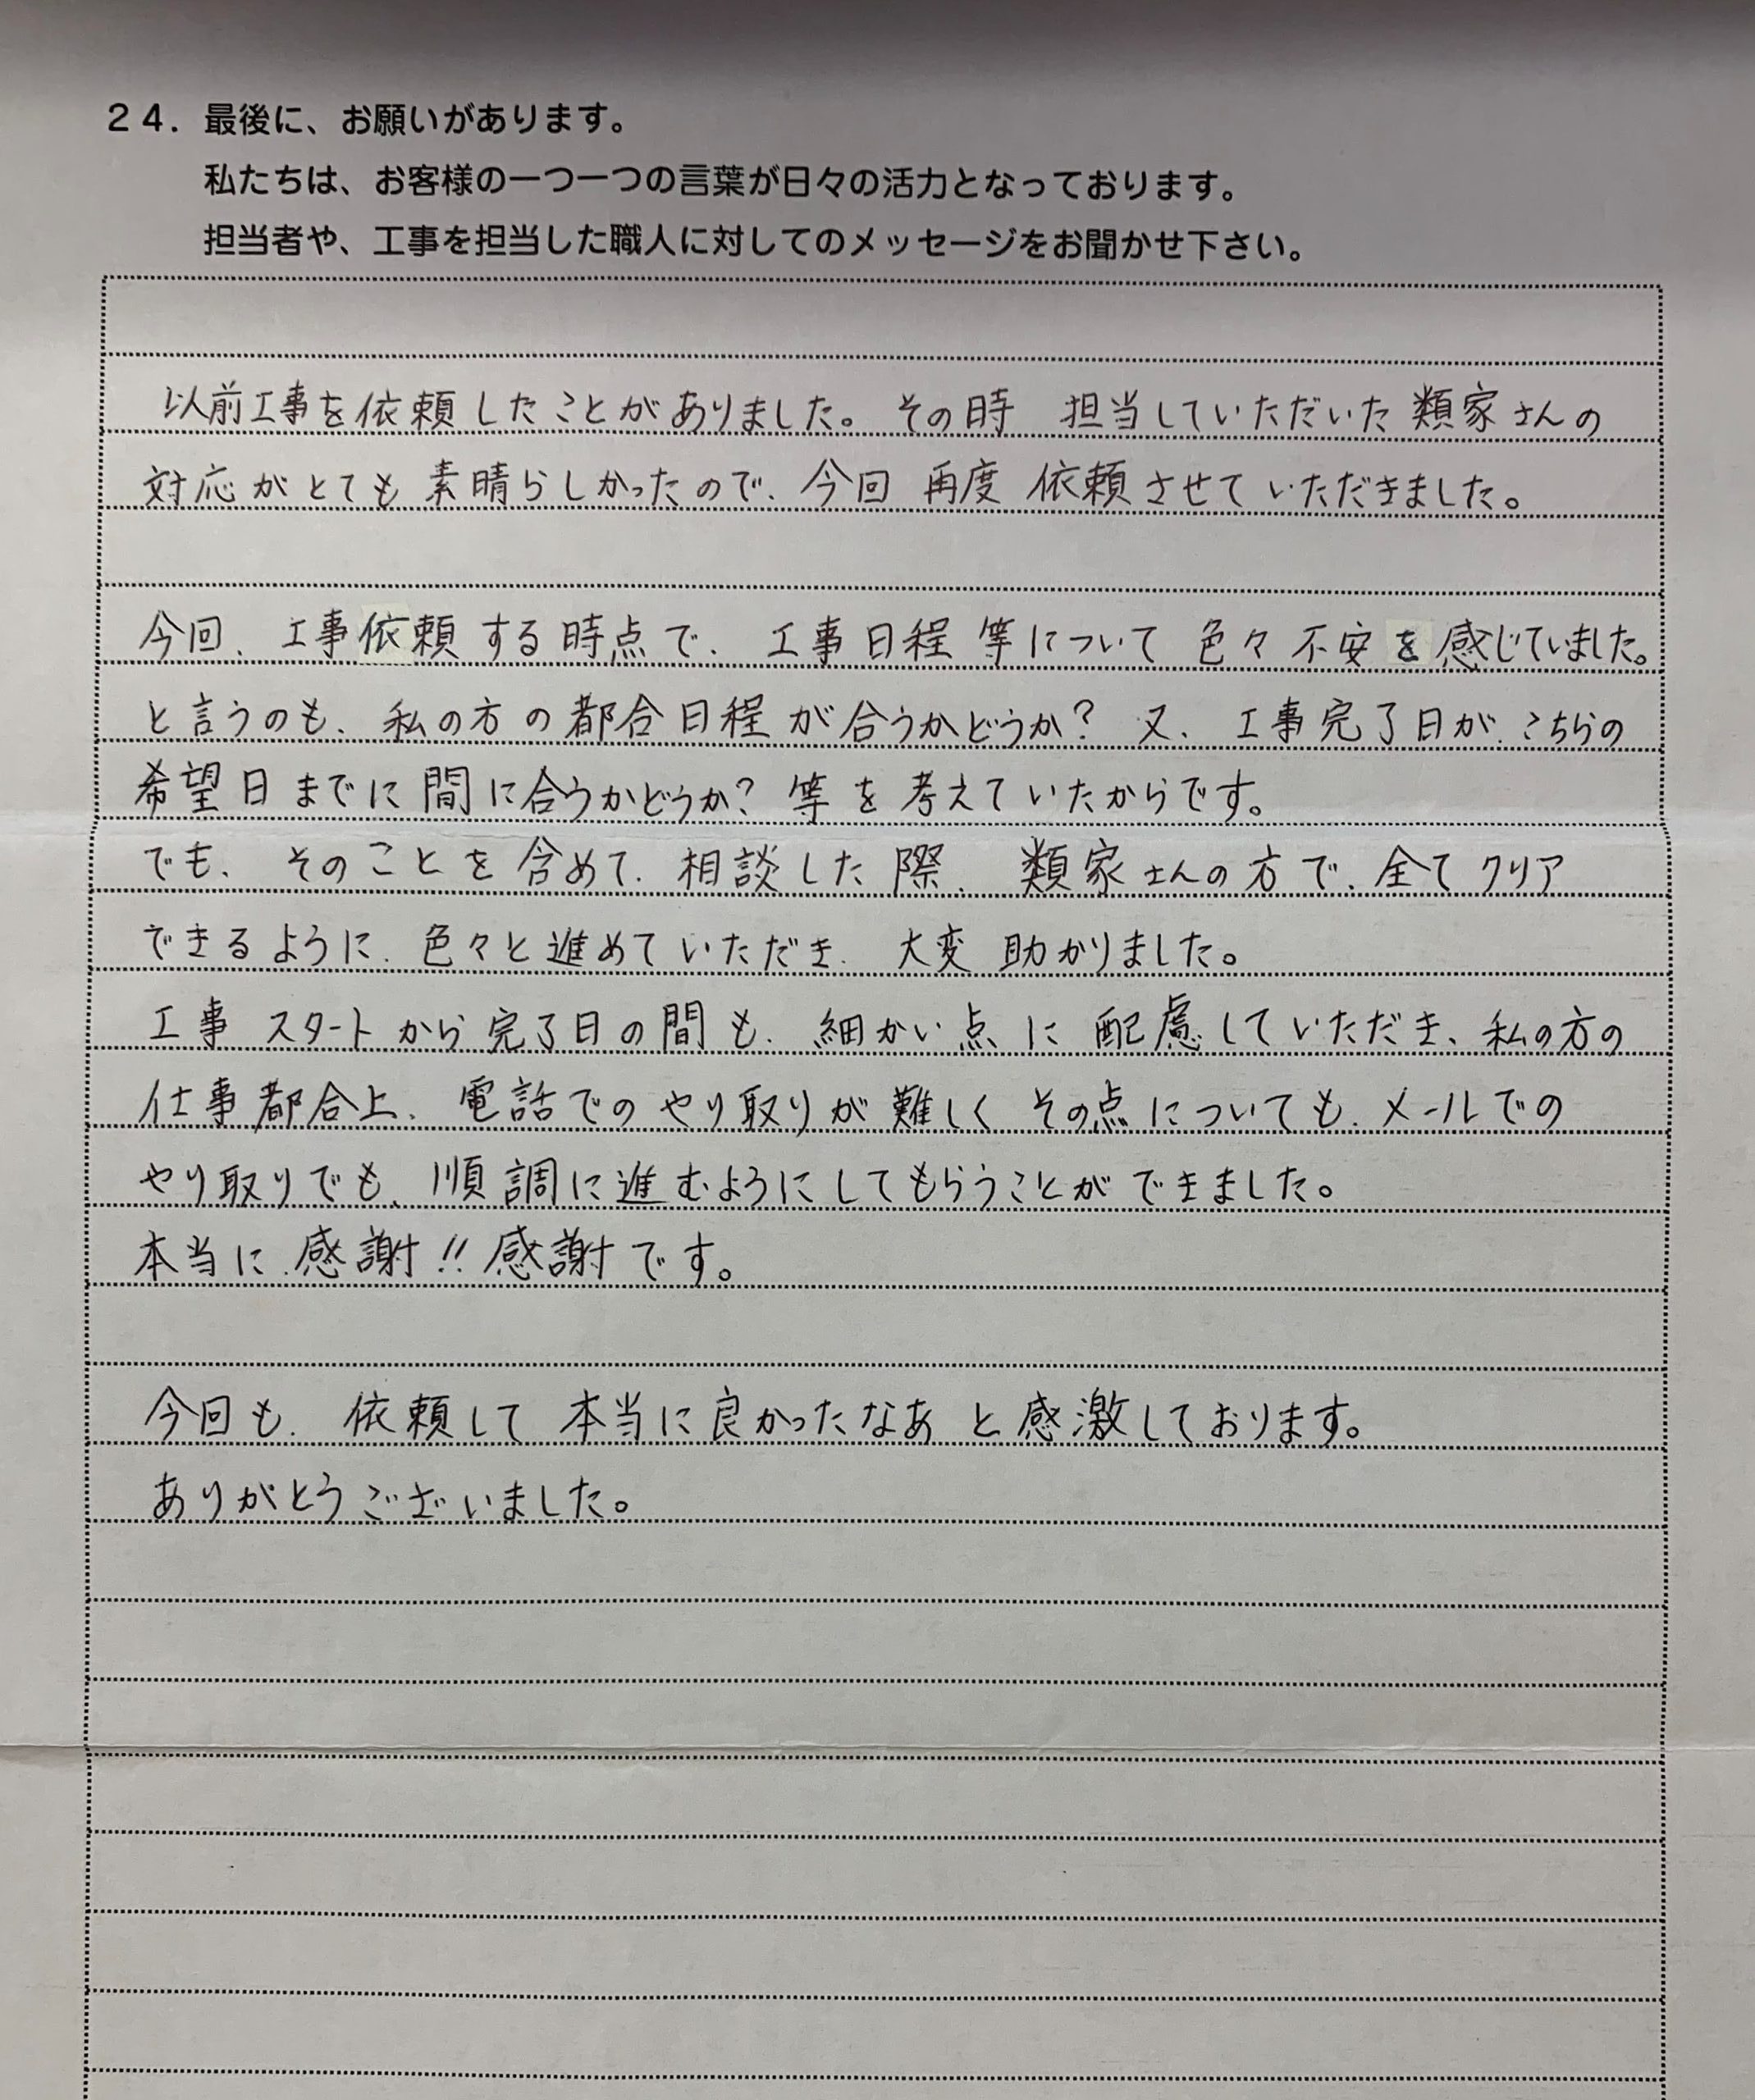 24. 最後に、お願いがあります。
私たちは、お客様の一つ一つの言葉が日々の活力となっております。
担当者や、工事を担当した職人に対してのメッセージをお聞かせ下さい。
以前工事を依頼したことがありました。その時 担当していただいた 類家さんの
対応がとても 素晴らしかったので、今回 再度 依頼させて いただきました。
今回、工事依頼する時点で、工事日程 等について 色々 不安を感じていました。
と言うのも、私の方の都合日程が合うかどうか? 又、工事完了日が、こちらの
希望日までに間に合うかどうか? 等を考えていたからです。
でも、そのことを含めて、相談した際、類家さんの方で、全てクリア
できるように、色々と進めていただき、大変 助かりました。
工事 スタートから 完了日の間も、細かい点に 配慮していただき、私の方の
仕事都合上、電話でのやり取りが難しく その点についても、メールでの
やり取りでも、順調に進むようにしてもらうことができました。
本当に、感謝!!感謝です。
今回も、依頼して 本当に良かったなあ と感激しております。
ありがとうございました。